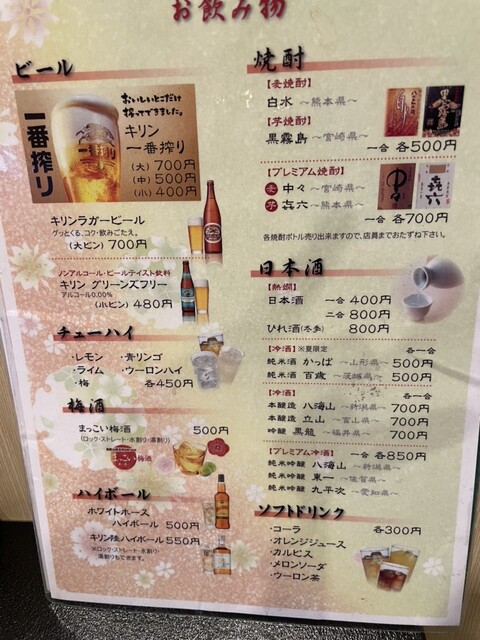 お飲み物
ビール
一番搾り
おいしいとこだけ
搾ってできました。
キリン
一番搾り
(大) 700円
(中) 500円
(小) 400円
キリンラガービール
グッとくる、コク・飲みごたえ。
(大ビン) 700円
ノンアルコール・ビールテイスト飲料
キリン グリーンズフリー
アルコール0.00%
(小ビン) 480円
チューハイ
・レモン ・青リンゴ
・ライム ・ウーロンハイ
・梅 各450円
梅酒
まっこい梅酒 500円
(ロック・ストレート・水割り・湯割り)
まっこい梅酒
ハイボール
ホワイトホース
ハイボール 500円
キリン陸ハイボール 550円
※ロック・ストレート・水割り・
湯割りもできます。
焼酎
【麦焼酎】
白水 〜熊本県〜
【芋焼酎】
黒霧島 〜宮崎県〜
一合 各500円
【プレミアム焼酎】
麦 中々 〜宮崎県〜
芋 㐂六 〜熊本県〜
一合 各700円
各焼酎ボトル売り出来ますので、店員までおたずね下さい。
日本酒
【熱燗】
日本酒 一合 400円
二合 800円
ひれ酒(冬季) 800円
【冷酒】※夏限定 各一合
純米酒 かっぱ 〜山形県〜 500円
純米酒 百歳 〜茨城県〜 500円
【冷酒】 各一合
本醸造 八海山 〜新潟県〜 700円
本醸造 立山 〜富山県〜 700円
吟醸 黒龍 〜福井県〜 700円
【プレミアム冷酒】 一合 各850円
純米吟醸 八海山 〜新潟県〜
純米吟醸 東一 〜佐賀県〜
純米吟醸 九平次 〜愛知県〜
ソフトドリンク
・コーラ 各300円
・オレンジジュース
・カルピス
・メロンソーダ
・ウーロン茶